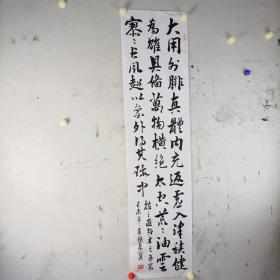 大用外腓真體內充返虛入渾積健
為雄具備萬物橫絕太空荒々油雲
寥々長風超以象外得其環中